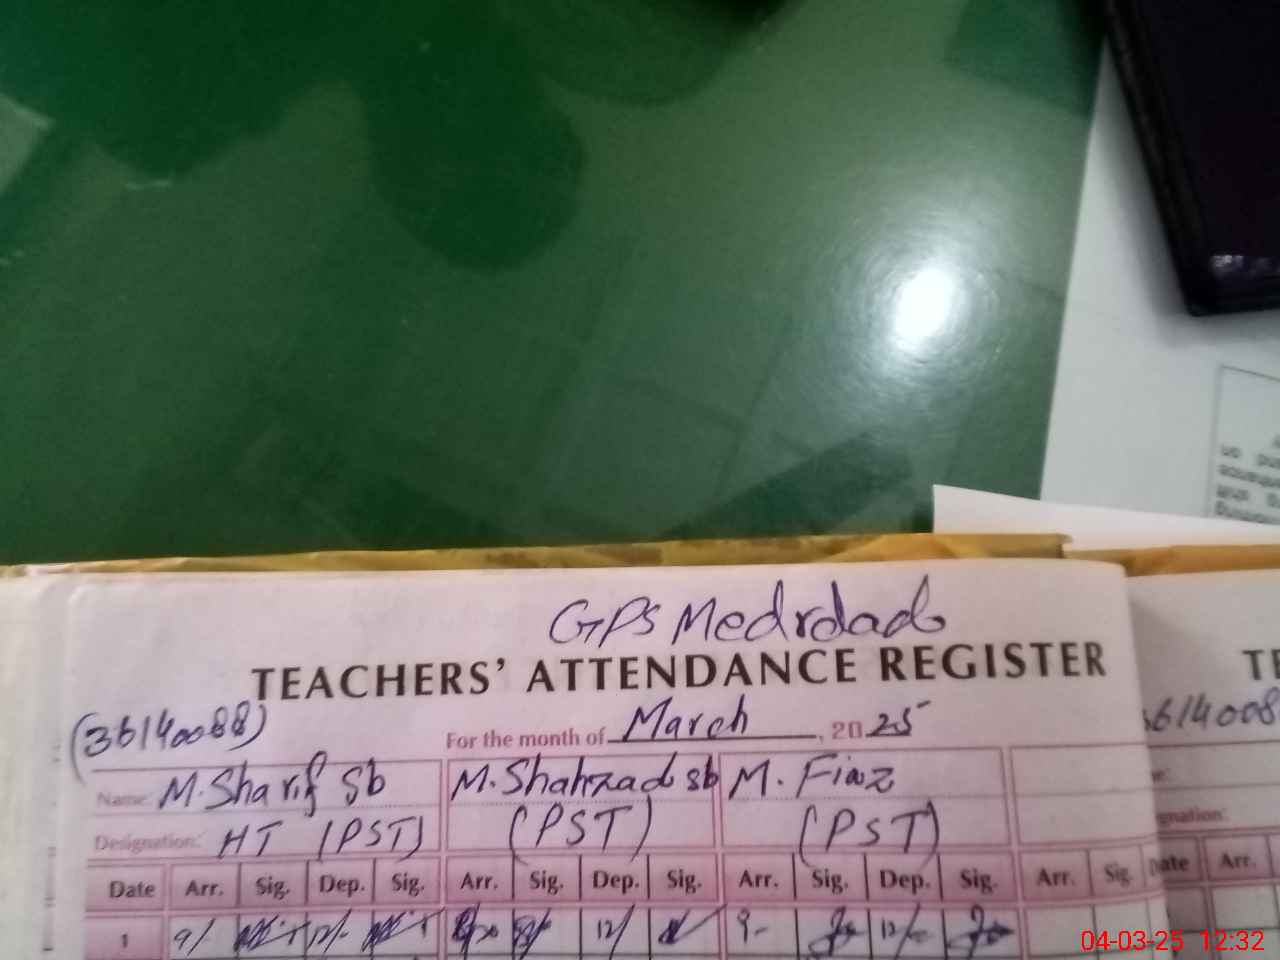 GPS Medrdad
TEACHERS' ATTENDANCE REGISTER
(36140088)
For the month of March, 2025
Name: M. Sharif Sb M. Shahzad sb M. Fiaz
Designation: HT (PST) (PST) (PST)
Date Arr. Sig. Dep. Sig. Arr. Sig. Dep. Sig. Arr. Sig. Dep. Sig. Arr. Sig.
1 9/ 12/- 12/ 9- 12/-
TE
3614008
Date Arr.
04-03-25 12:32